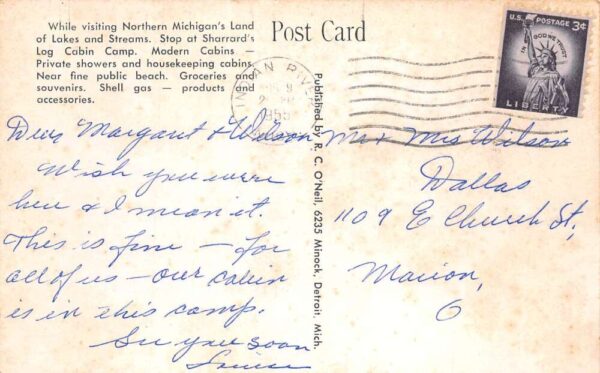 While visiting Northern Michigan's Land
of Lakes and Streams. Stop at Sharrard's
Log Cabin Camp. Modern Cabins —
Private showers and housekeeping cabins.
Near fine public beach. Groceries and
souvenirs. Shell gas — products and
accessories.
Post Card
U.S. POSTAGE 3¢
IN GOD WE TRUST
LIBERTY
INDIAN RIVER
1955
Published by R. C. O'Neil, 6235 Minock, Detroit, Mich.
Dear Margaret & Wilson
Wish you were
here & I mean it.
This is fine — for
all of us — our cabin
is in this camp.
See you soon
Louise
Mr + Mrs Wilson
Dallas
1109 E Church St,
Marion,
O